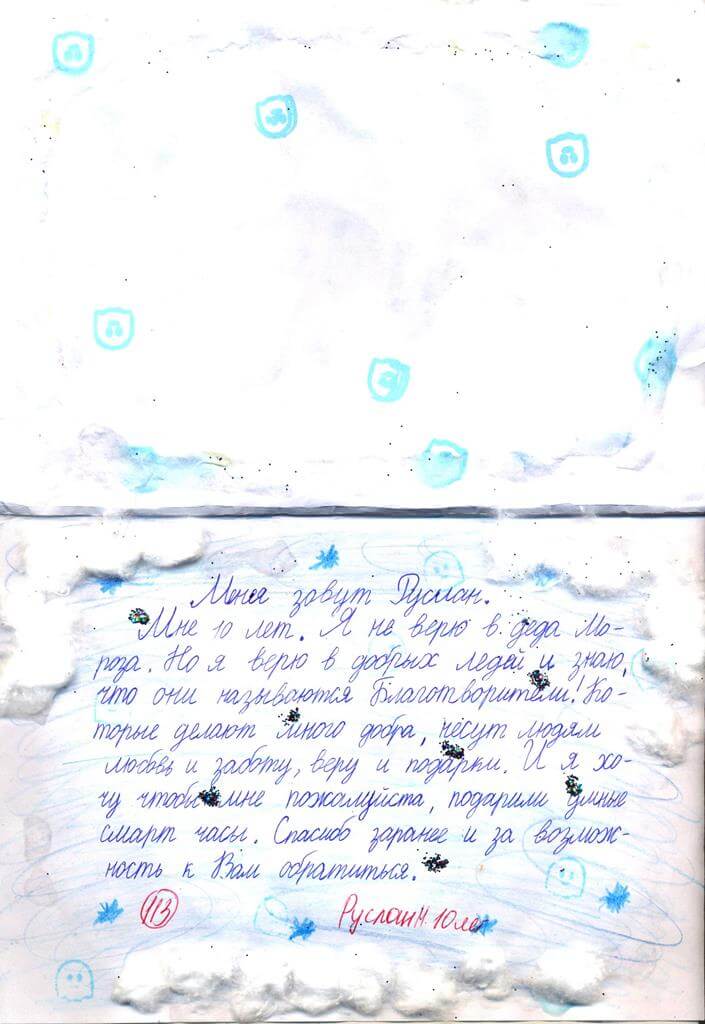 Меня зовут Руслан.
Мне 10 лет. Я не верю в деда Мо-
роза. Но я верю в добрых ледей и знаю,
что они называются Благотворители! Ко-
торые делают много добра, несут людям
любовь и заботу, веру и подарки. И я хо-
чу чтобы мне пожалуйста, подарили умные
смарт часы. Спасибо заранее и за возмож-
ность к Вам обратиться.
113 Руслан Н. 10 лет